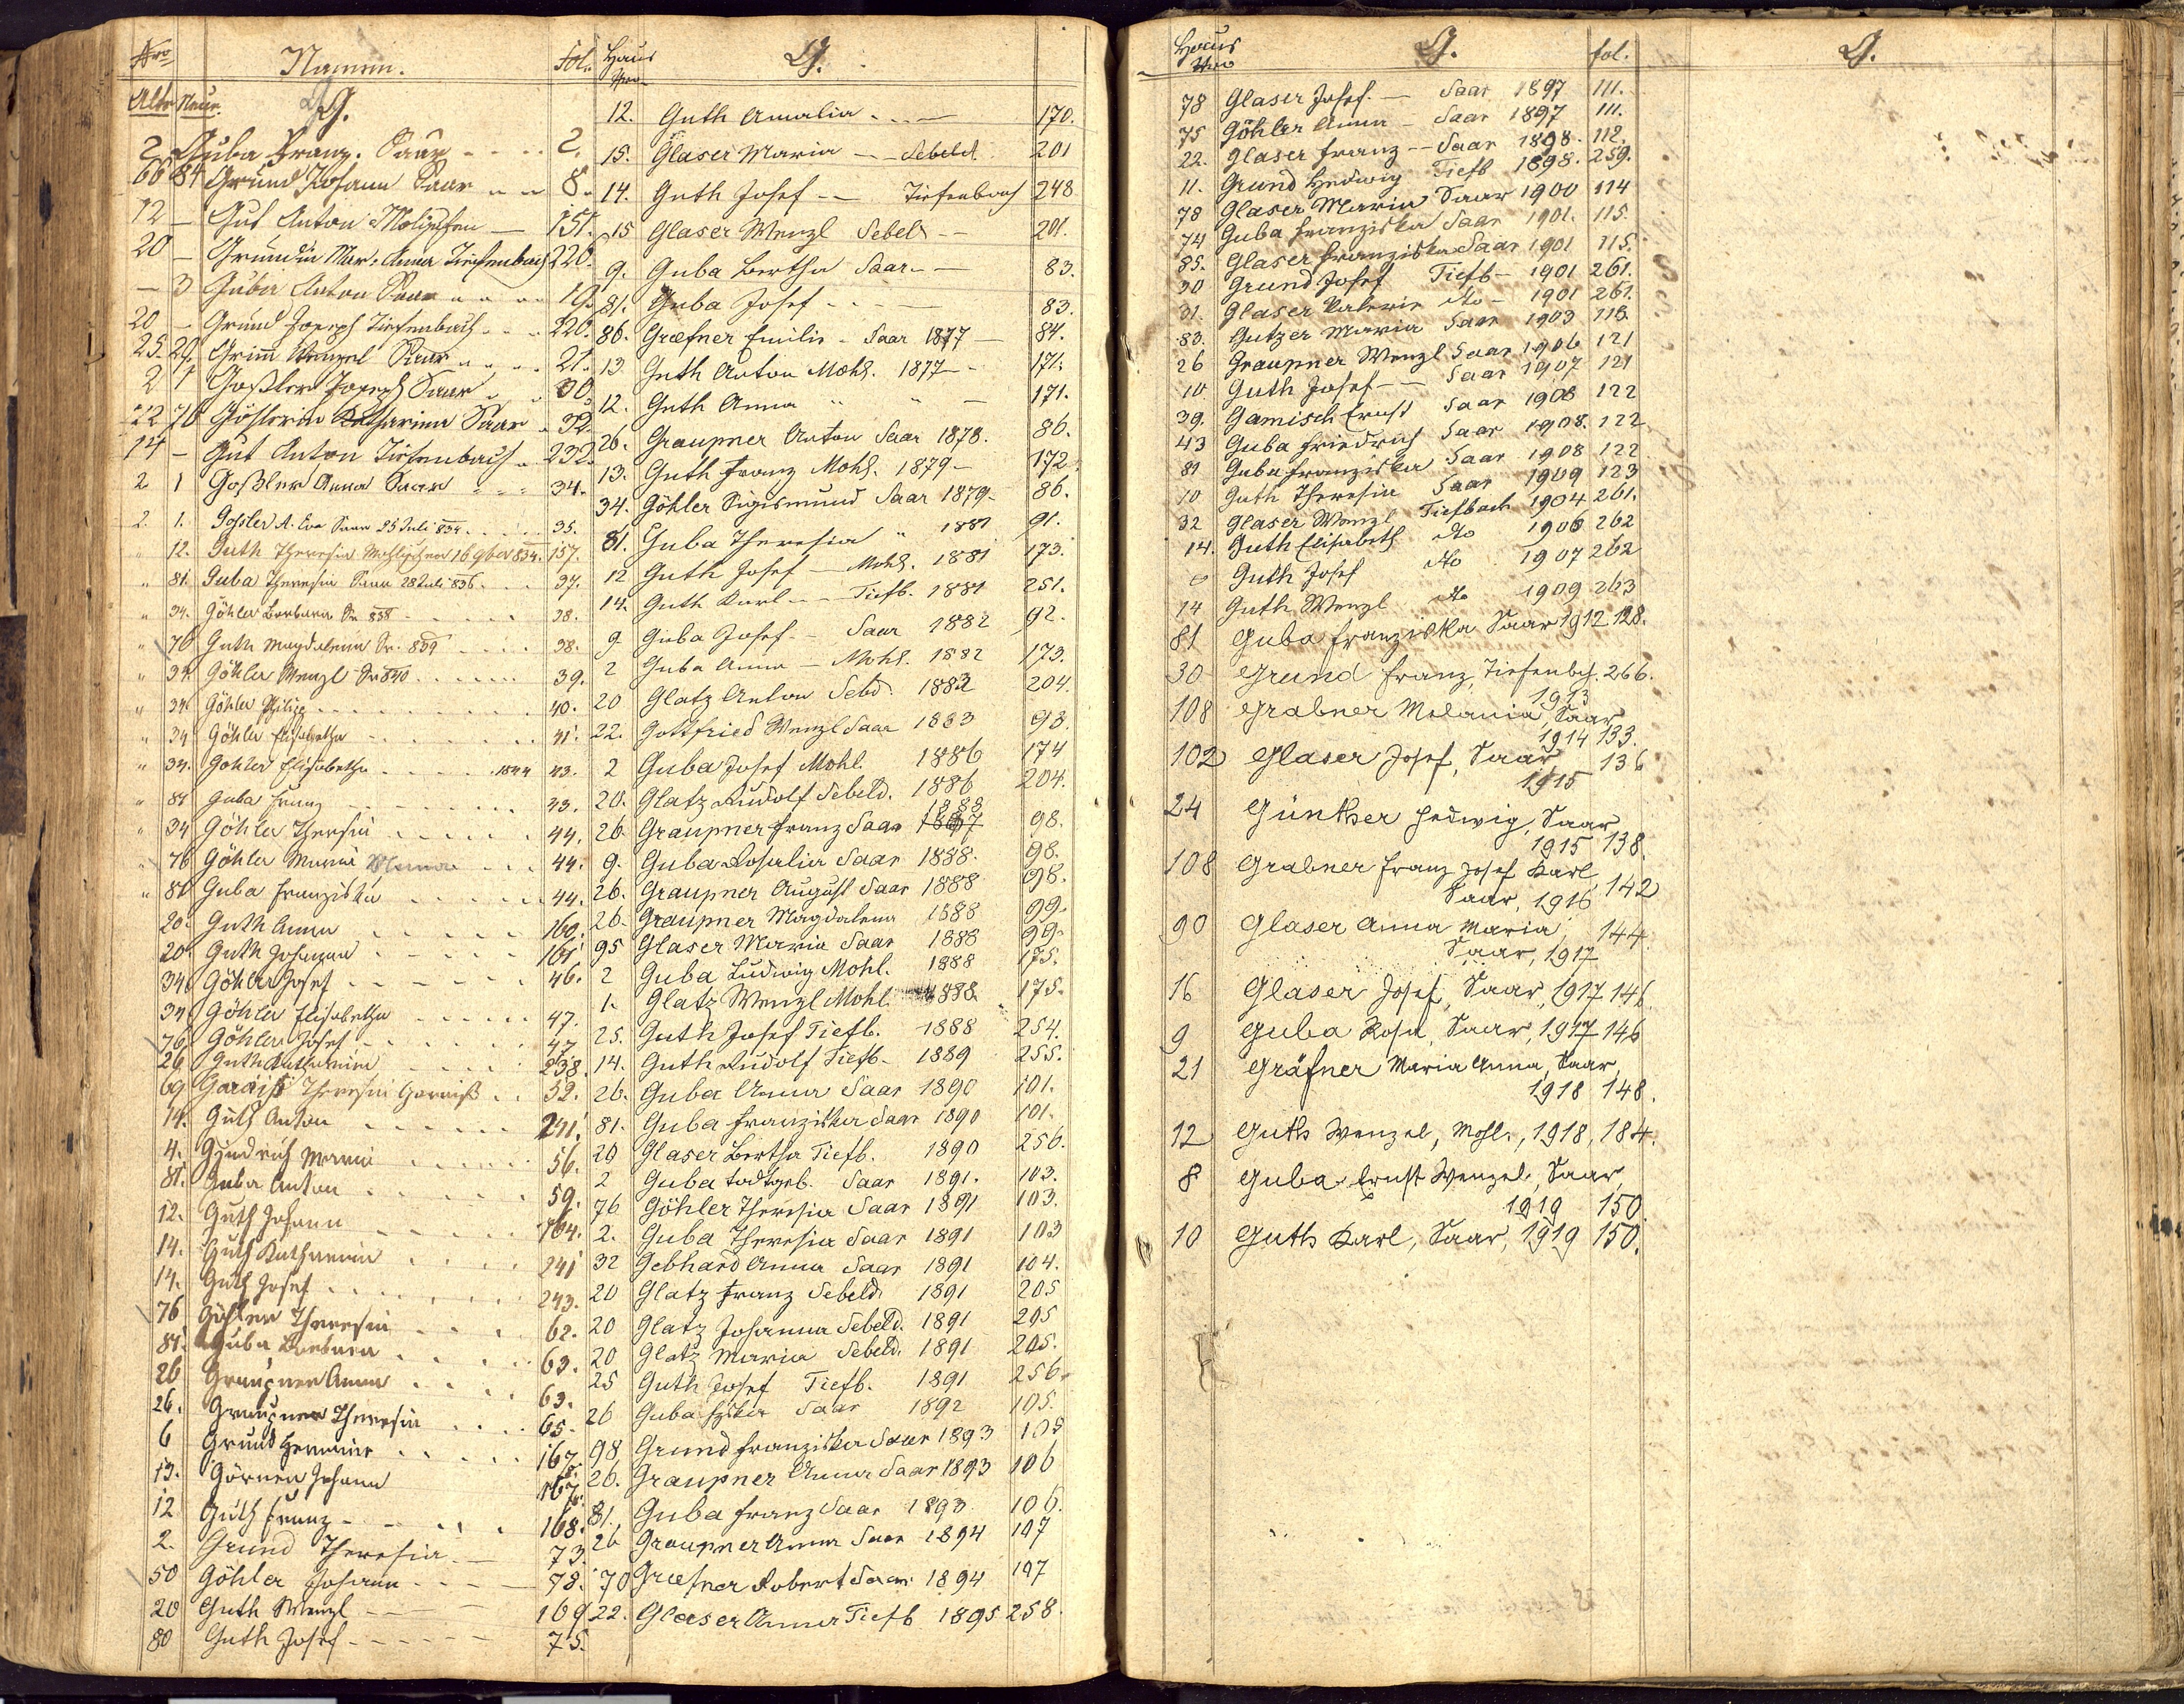 Nro Namen. Fol.
Alte Neue G.
2 Guba Franz. Saar 2.
66 84 Grund Johann Saar 8.
12 — Gut Anton 151.
20 — Gründin Mar: Anna Tiefenbach 220.
— 3 Guba Anton Saar 19.
20 — Grund Joseph Tiefenbach 220.
25. 29. Grim Wenzel Saar 21.
2 1 Goßler Joseph Saar 30.
22 76 Göhlerin Katharina Saar 32.
14 — Gut Anton Tiefenbach 232.
2 1 Goßler Anna Saar 34.
2. 1. Goßler A. Eva Saar 25 Juli 834. 35.
" 12. Guth Theresia 16 834. 157.
" 81. Guba Theresia Saar 28 Juli 836. 37.
" 34. Göhler Barbara Sr. 838 38.
" 76 Guth Magdalena Sr. 839 38.
" 34. Göhler Wenzl Sr 840 39.
" 34. Göhler Philip 40.
" 34 Göhler Elisabetha 41.
" 34. Göhler Elisabetha 1844 43.
" 81 Guba Franz 43.
" 34 Göhler Thersia 44.
" 76 Göhler Maria 44.
" 81 Guba Franziska 44.
20. Guth Anna 160.
20. Guth Johann 161.
34 Göhler Josef 46.
34 Göhler Elisabetha 47.
76. Göhler Josef 47.
26. Guth Katharina 238.
69 Garaiß Theresia Garaiß 52.
14. Guth Anton 241.
4. Maria 56.
81. Guba Anton 59.
12. Guth Johann 164.
14. Guth Katharina 241
14. Guth Josef 243.
76 Göhler Theresia 62.
81. Guba Barbara 63.
26 Graupner Anna 63.
26. Graupner Theresia 65.
6 Grund Hermine 167.
13. Görner Johann 167.
12 Guth Franz 168.
2. Grund Theresia 73.
50 Göhler Johann 78.
20 Guth Wenzl 169
80 Guth Josef 75.
Haus Nro G.
12. Guth Amalia 170.
15. Glaser Maria — Sebeld. 201
14. Guth Josef — Tiefenbach 248
15 Glaser Wenzl Sebel 201.
9. Guba Bertha Saar — 83.
81. Guba Josef 83.
86. Græfner Emilie - Saar 1877 — 84.
13. Guth Anton Mohl. 1877 171.
12. Guth Anna " " — 171.
26. Graupner Anton Saar 1878. 86.
13. Guth Franz Mohl. 1879 — 172.
34. Göhler Sigismund Saar 1879 - 86.
81. Guba Theresia " 1881 91.
12 Guth Josef — Mohl. 1881 173.
14. Guth Karl — Tiefb. 1881 251.
9. Guba Josef — Saar 1882 92.
2 Guba Anna — Mohl. 1882 173.
20 Glatz Anton Sebd. 1882 204.
22. Gottfried Wenzl Saar 1883 93.
2 Guba Josef Mohl. 1886 174
20. Glatz Rudolf Sebeld. 1886 204.
26. Graupner Franz Saar 1887 1888 98.
9. Guba Rosalia Saar 1888. 98.
26. Graupner August Saar 1888 98.
26. Graupner Magdalena 1888 99.
95 Glaser Maria Saar 1888 99.
2 Guba Ludwig Mohl. 1888 175.
1. Glatz Wenzl Mohl. 1888. 175.
25. Guth Josef Tiefb. 1888 254.
14. Guth Rudolf Tiefb. 1889 255.
26. Guba Anna Saar 1890 101.
81. Guba Franziska Saar 1890 101.
20 Glaser Bertha Tiefb. 1890 256.
2 Guba todtgeb. Saar 1891. 103.
76 Göhler Theresia Saar 1891 103.
2. Guba Theresia Saar 1891 103
32 Gebhard Anna Saar 1891 104.
20 Glatz Franz Sebeld. 1891 205
20 Glatz Johanna Sebeld. 1891 205
20 Glatz Maria Sebeld. 1891 205.
25 Guth Josef Tiefb. 1891 256.
26 Guba Saar 1892 105.
98 Grund Franziska Saar 1893 105
26. Graupner Anna Saar 1893 106
81. Guba Franz Saar 1893. 106.
26 Graupner Anna Saar 1894 107
70 Græfner Robert Saar 1894 107
22. Glaser Anna Tiefb 1895 258.
Haus Nro G. fol.
78 Glaser Josef. — Saar 1897 111.
75 Göhler Anna — Saar 1897 111.
22. Glaser Franz — Saar 1898. 112.
11. Grund Hedwig Tiefb 1898. 259.
78 Glaser Maria Saar 1900 114
74 Guba Franziska Saar 1901. 115.
85. Glaser Franziska Saar 1901 115.
30 Grund Josef Tiefb — 1901 261.
31. Glaser Valerie dto — 1901 261.
83. Gutzer Maria Saar 1903 118.
26 Graupner Wenzl Saar 1906 121
10. Guth Josef — Saar 1907 121
39. Gamisch Ernst Saar 1908 122
43 Guba Friedrich Saar 1908. 122
81 Guba Franziska Saar 1908 122
10 Guth Theresia Saar 1909 123
32 Glaser Wenzl Tiefbach 1904 261.
14. Guth Elisabeth dto 1906 262
Guth Josef dto 1907 262
14 Guth Wenzl dto 1909 263
81 Guba Franziska Saar 1912 128.
30 Grund Franz, Tiefenbch. 266.
1913
108 Grabner Melania, Saar
1914 133.
102 Glaser Josef, Saar 136
1915
24 Günther Hedwig, Saar
1915 138.
108 Grabner Franz Josef Karl
Saar, 1916 142
90 Glaser Anna Maria, 144.
Saar, 1917
16 Glaser Josef, Saar, 1917 146.
9 Guba Rosa, Saar, 1917 146
21 Gräfner Maria Anna, Saar,
1918 148.
12 Guth Wenzel, Mohl., 1918, 184.
8 Guba Ernst Wenzel, Saar,
1919 150.
10 Guth Karl, Saar, 1919 150.
G.